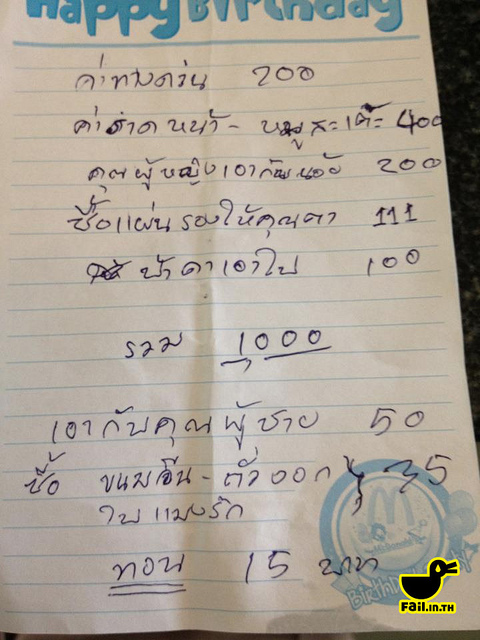 Happy Birthday
ค่าทางด่วน 200
ค่าราดหน้า - หมูสะเต๊ะ 400
คุณผู้หญิงเอากับน้อง 200
ซื้อแผ่นรองให้คุณตา 111
ป้าดาเอาไป 100
รวม 1000
เอากับคุณผู้ชาย 50
ซื้อ ขนมจีน - ถั่วงอก } 35
ใบแมงรัก
ทอน 15 บาท
McDonald's
Birthday
FAiL.in.TH